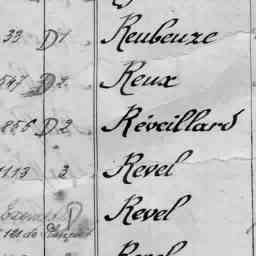 33 D 1 Reubeuze
547 D 2 Reux
856 D 2 Réveillard
1113 3 Revel
Revel
Revel